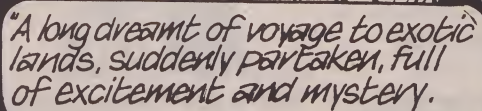 "A long dreamt of voyage to exotic
lands, suddenly partaken, full
of excitement and mystery.